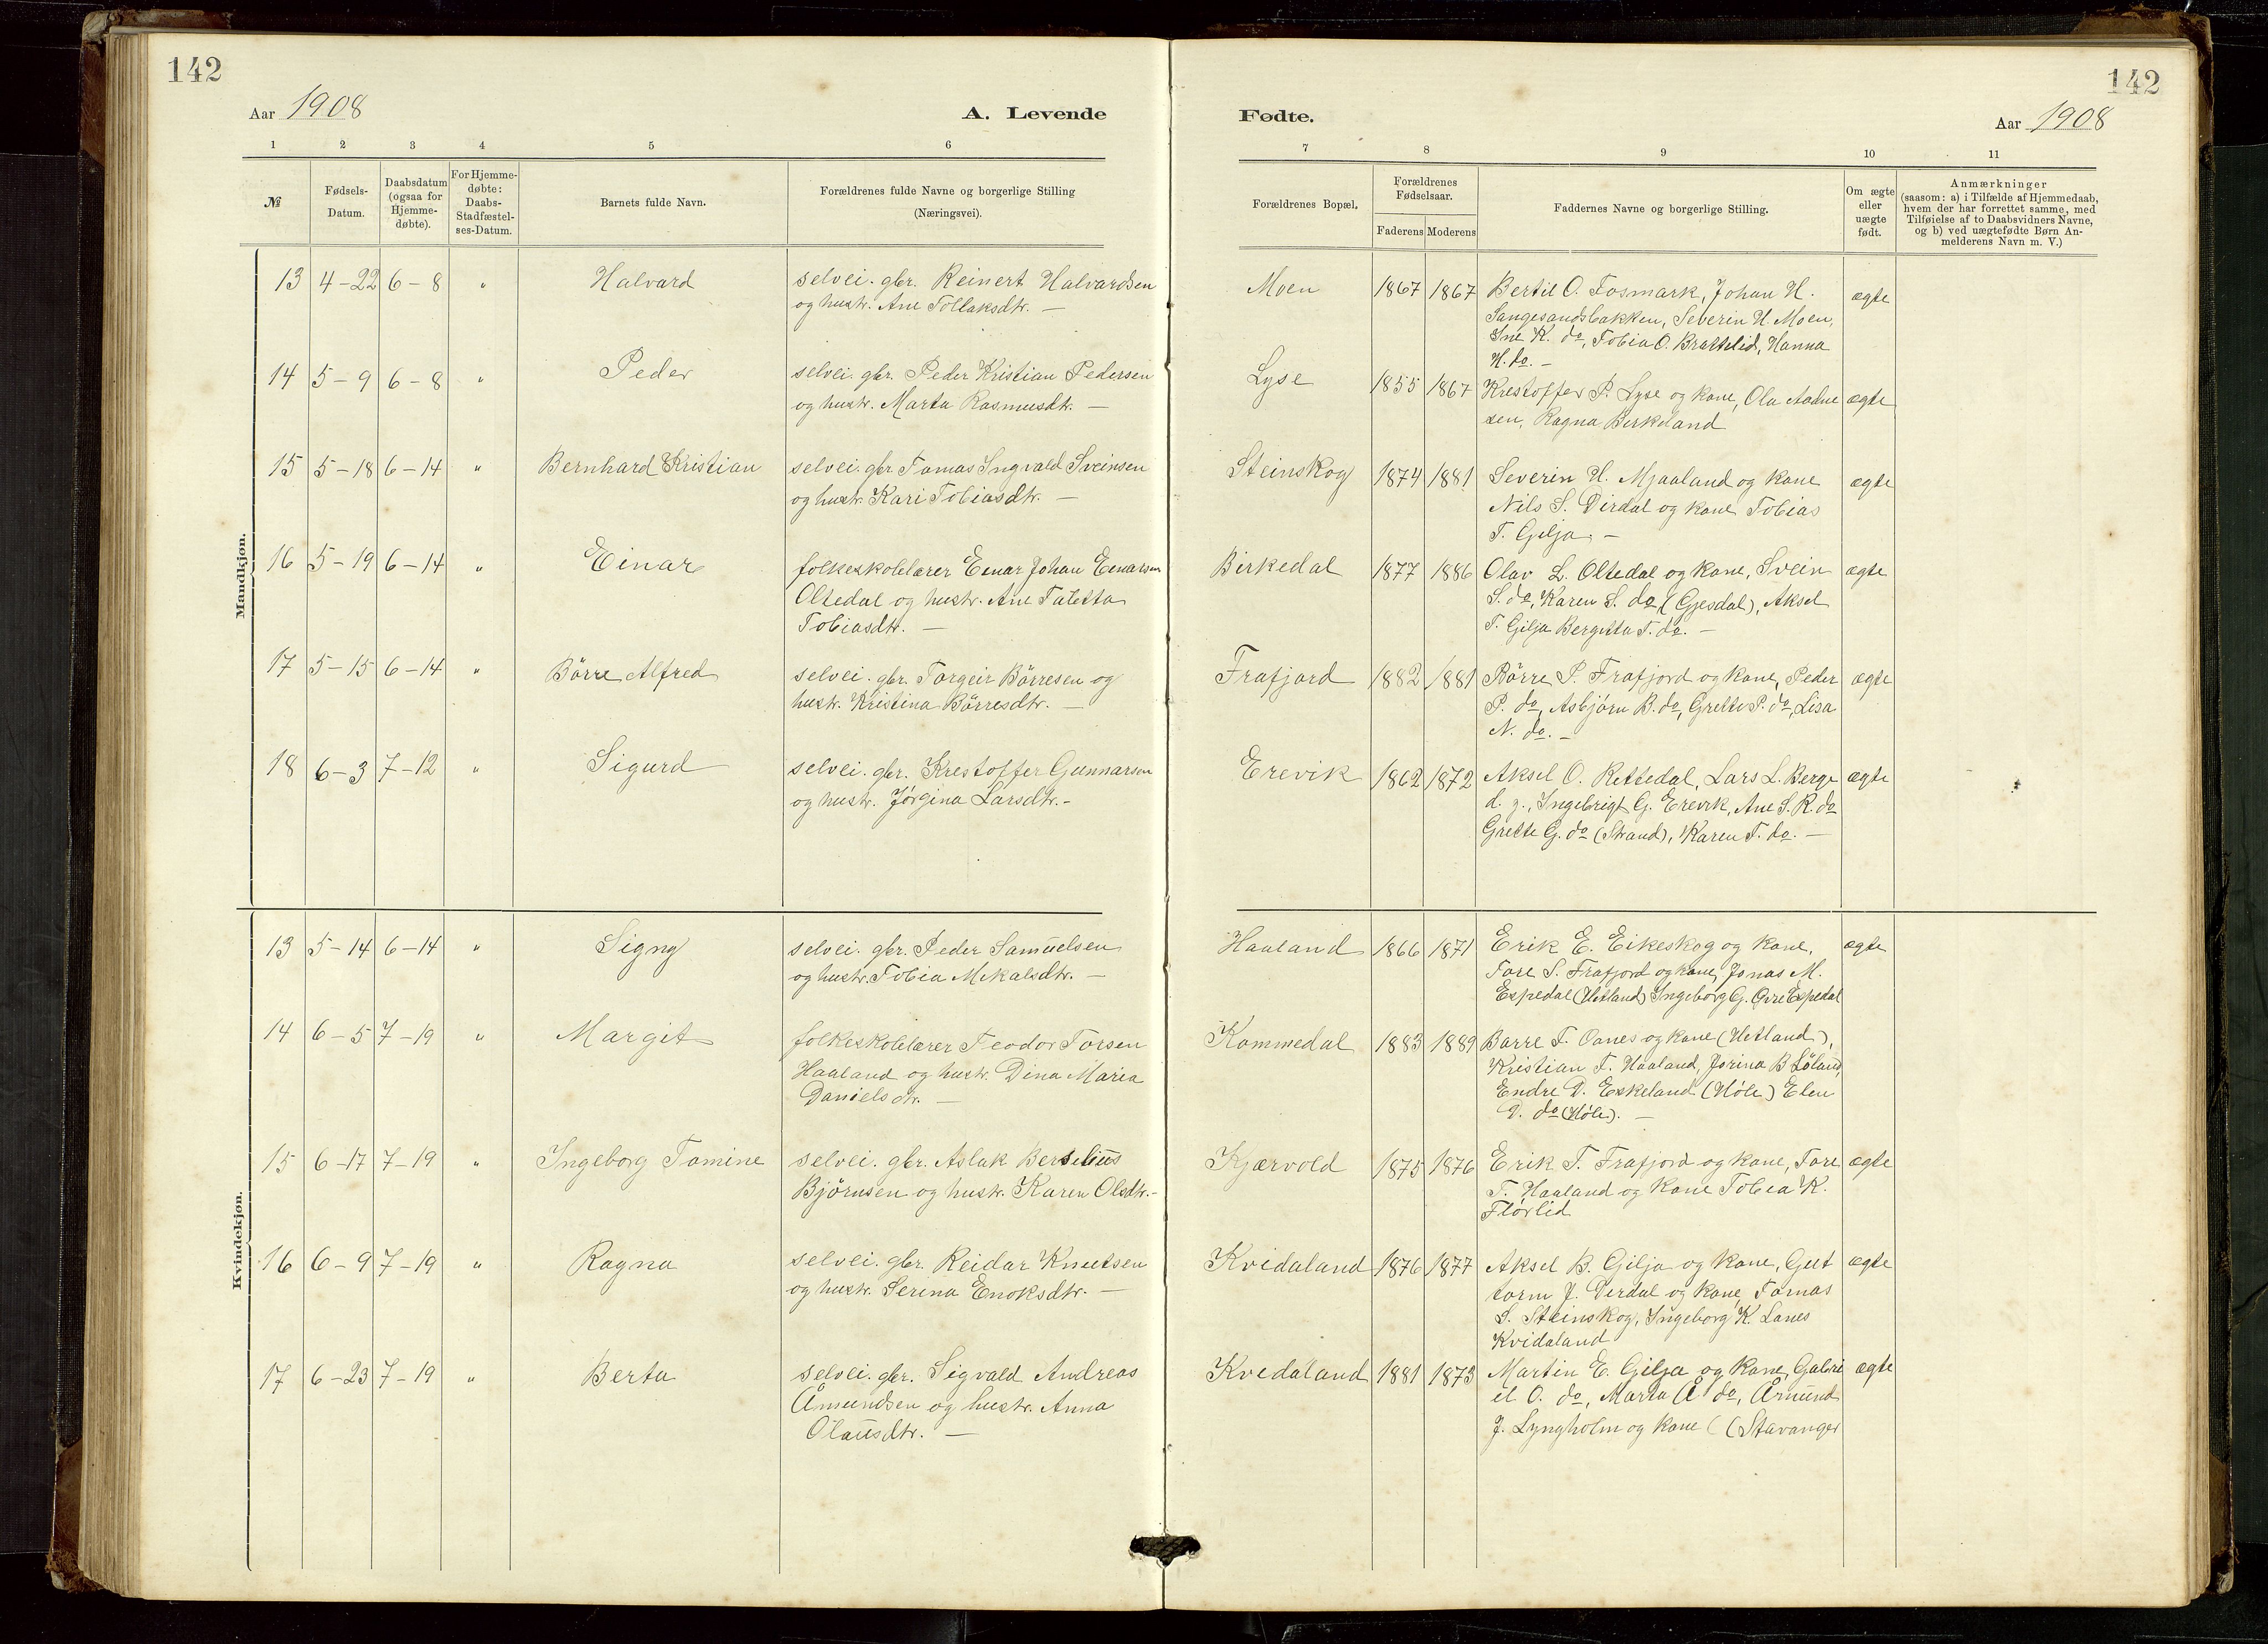 142
142
Aar 1908
A. Levende
Fødte.
Aar 1908
1 2 3 4 5 6 7 8 9 10 11
№
Fødsels-
Datum.
Daabsdatum
(ogsaa for
Hjemme-
døbte).
For Hjemme-
døbte:
Daabs-
Stadfæstel-
ses-Datum.
Barnets fulde Navn.
Forældrenes fulde Navne og borgerlige Stilling
(Næringsvei).
Forældrenes Bopæl.
Forældrenes
Fødselsaar.
Faderens Moderens
Faddernes Navne og borgerlige Stilling.
Om ægte
eller
uægte
født.
Anmærkninger
(saasom: a) i Tilfælde af Hjemmedaab,
hvem der har forrettet samme, med
Tilføielse af to Daabsvidners Navne,
og b) ved uægtefødte Børn An-
melderens Navn m. V.)
Mandkjøn.
13 4-22 6-8 " Halvard
selvei. gbr. Reinert Halvardsen
og hustr. Ane Tollaksdtr. —
Moen 1867 1867
Bertil O. Fosmark, Johan H.
Sangesandsbakken, Severin H. Moen,
Ine K. do, Tobia O. Brattelid, Hanna
H. do. —
ægte
14 5-9 6-8 " Peder
selvei. gbr. Peder Kristian Pedersen
og hustr. Marta Rasmusdtr. —
Lyse 1855 1867
Krestoffer P. Lyse og kone, Ola Aadne
sen, Ragna Birkeland
ægte
15 5-18 6-14 " Bernhard Kristian
selvei. gbr. Tomas Ingvald Sveinsen
og hustr. Kari Tobiasdtr. —
Steinskog 1874 1881
Severin H. Mjaaland og kone
Nils S. Dirdal og kone Tobias
T. Gilja. —
ægte
16 5-19 6-14 " Einar
folkeskolelærer Einar Johan Einarsen
Oltedal og hustr. Ane Taletta
Tobiasdtr. —
Birkedal 1877 1886
Olav L. Oltedal og kone, Svein
S. do, Karen S. do (Gjesdal), Aksel
T. Gilja Bergitta T. do. —
ægte
17 5-15 6-14 " Börre Alfred
selvei. gbr. Torgeir Börresen og
hustr. Kristina Börresdtr. —
Frafjord 1882 1881
Börre P. Frafjord og kone, Peder
P. do, Asbjörn B. do, Grette P. do, Lisa
N. do. —
ægte
18 6-3 7-12 " Sigurd
selvei. gbr. Krestoffer Gunnarsen
og hustr. Jörgina Larsdtr. —
Erevik 1862 1872
Aksel O. Rettedal, Lars L. Berge
d. y., Ingebrigt G. Erevik, Ane S. R. do
Grette G. do (Strand), Karen T. do. —
ægte
Kvindekjøn.
13 5-14 6-14 " Signy
selvei. gbr. Peder Samuelsen
og hustr. Tobia Mikalsdtr. —
Haaland 1866 1871
Erik E. Eikeskog og kone,
Tore S. Frafjord og kone, Jonas M.
Espedal (Hetland) Ingeborg G. Øvre Espedal
ægte
14 6-5 7-19 " Margit
folkeskolelærer Teodor Torsen
Haaland og hustr. Dina Maria
Danielsdtr. —
Kommedal 1883 1889
Börre T. Oanes og kone (Hetland),
Kristian T. Haaland, Jorina B Löland,
Endre D. Eskeland (Höle) Elen
D. do (Höle). —
15 6-17 7-19 " Ingeborg Tomine
selvei. gbr. Aslak Berselius
Björnsen og hustr. Karen Olsdtr. —
Kjærvold 1875 1876
Erik T. Frafjord og kone, Tore
T. Haaland og kone Tobia K.
Flörlid
ægte
16 6-9 7-19 " Ragna
selvei. gbr. Reidar Knutsen
og hustr. Serina Enoksdtr. —
Kvidaland 1876 1877
Aksel B. Gilja og kone, Gut
torm J. Dirdal og kone, Tomas
S. Steinskog, Ingeborg K. Lanes
Kvidaland
ægte
17 6-23 7-19 " Berta
selvei. gbr. Sigvald Andreas
Åmundsen og hustr. Anna
Olausdtr. —
Kvidaland 1881 1873
Martin E. Gilja og kone, Gabri
el O. do, Marta Å do, Åmund
J. Lyngholm og kone ( (Stavanger
ægte